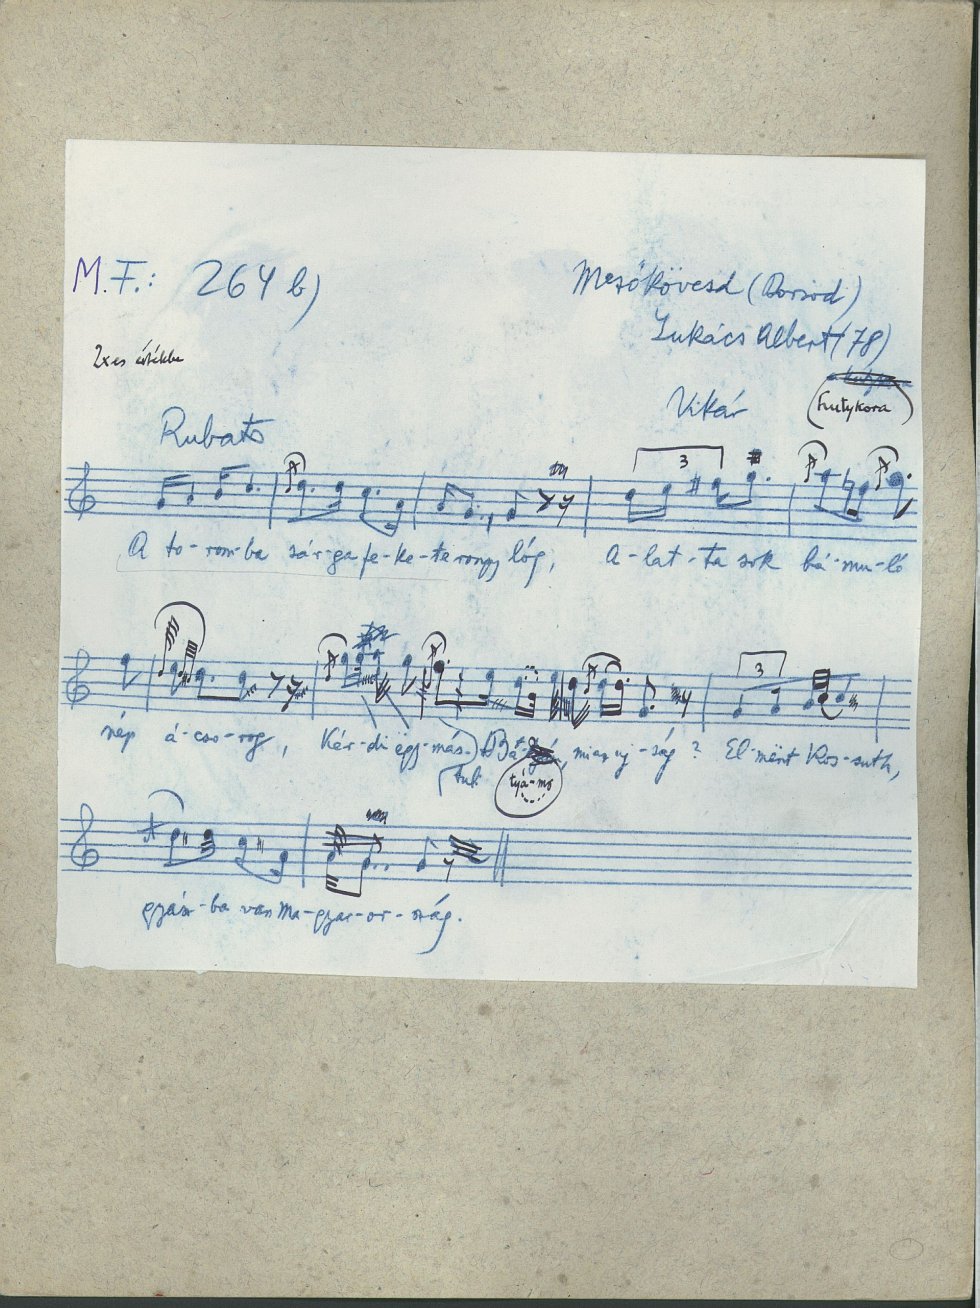 M.F.: 264 b)
Mezőkövesd (Borsod)
Lukács Albert (78)
2x-es értékbe
Vikár
Rubato
3
A to-rom-ba sár-ga fe-ke-te rongy lóg, A-lat-ta sok bá-mu-ló
3
nép á-cso-rog, Kér-di egy-más- Bá- , mi az uj-ság? El-mënt Kos-suth,
tyá-mo
gyász-ba van Ma-gyar-or-szág.